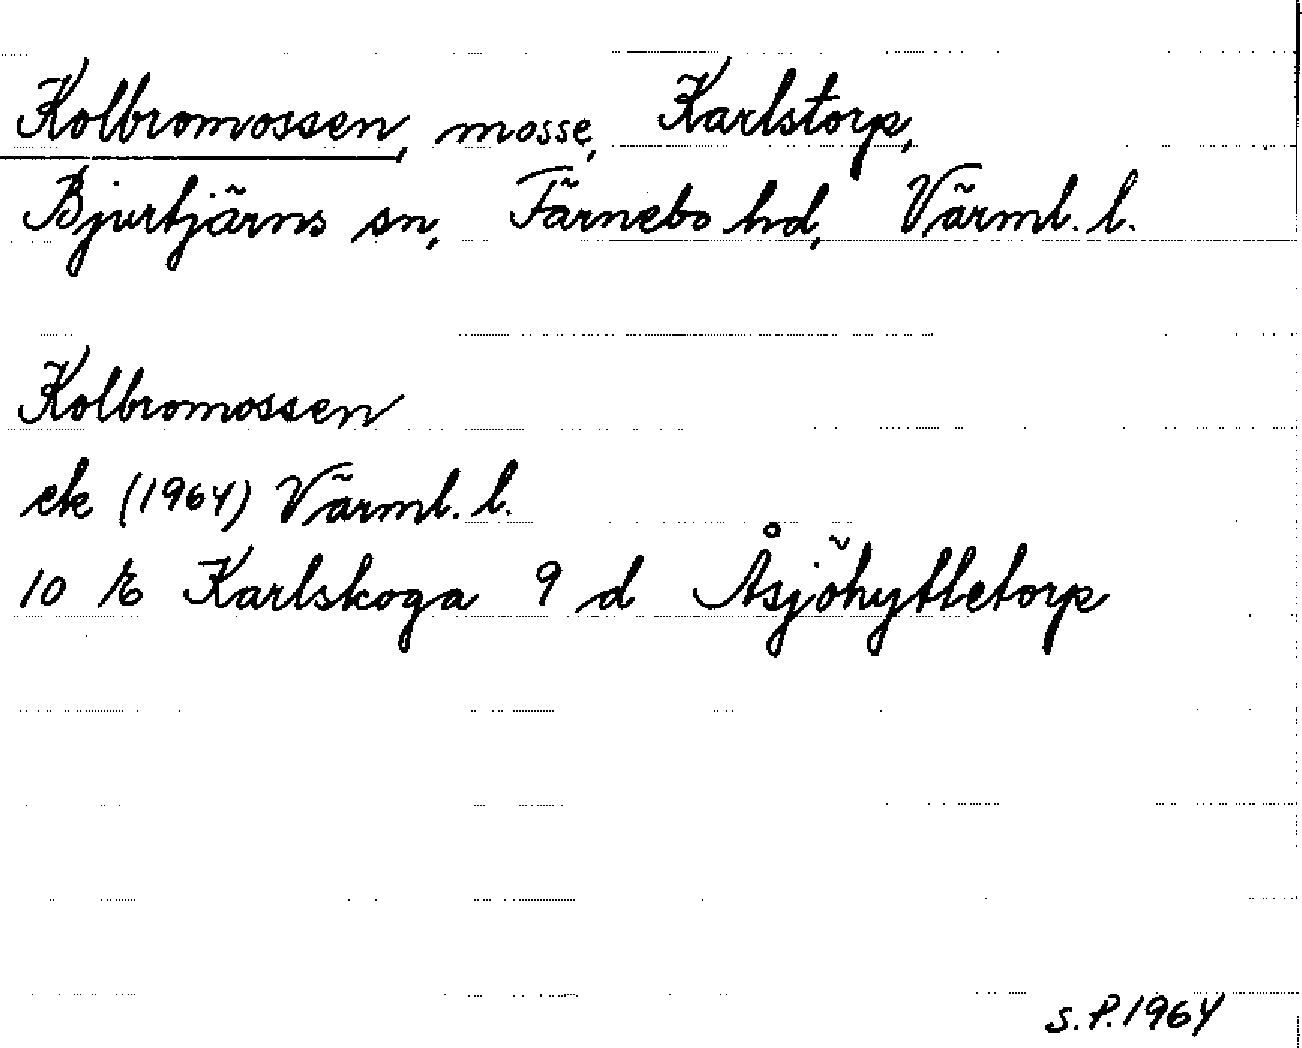 Kolbromossen, mosse, Karlstorp,
Bjurtjärns sn, Färnebo hd, Värml. l.
Kolbromossen
ek (1964) Värml. l.
10 E Karlskoga 9 d Åsjöhyttetorp
S.P. 1964